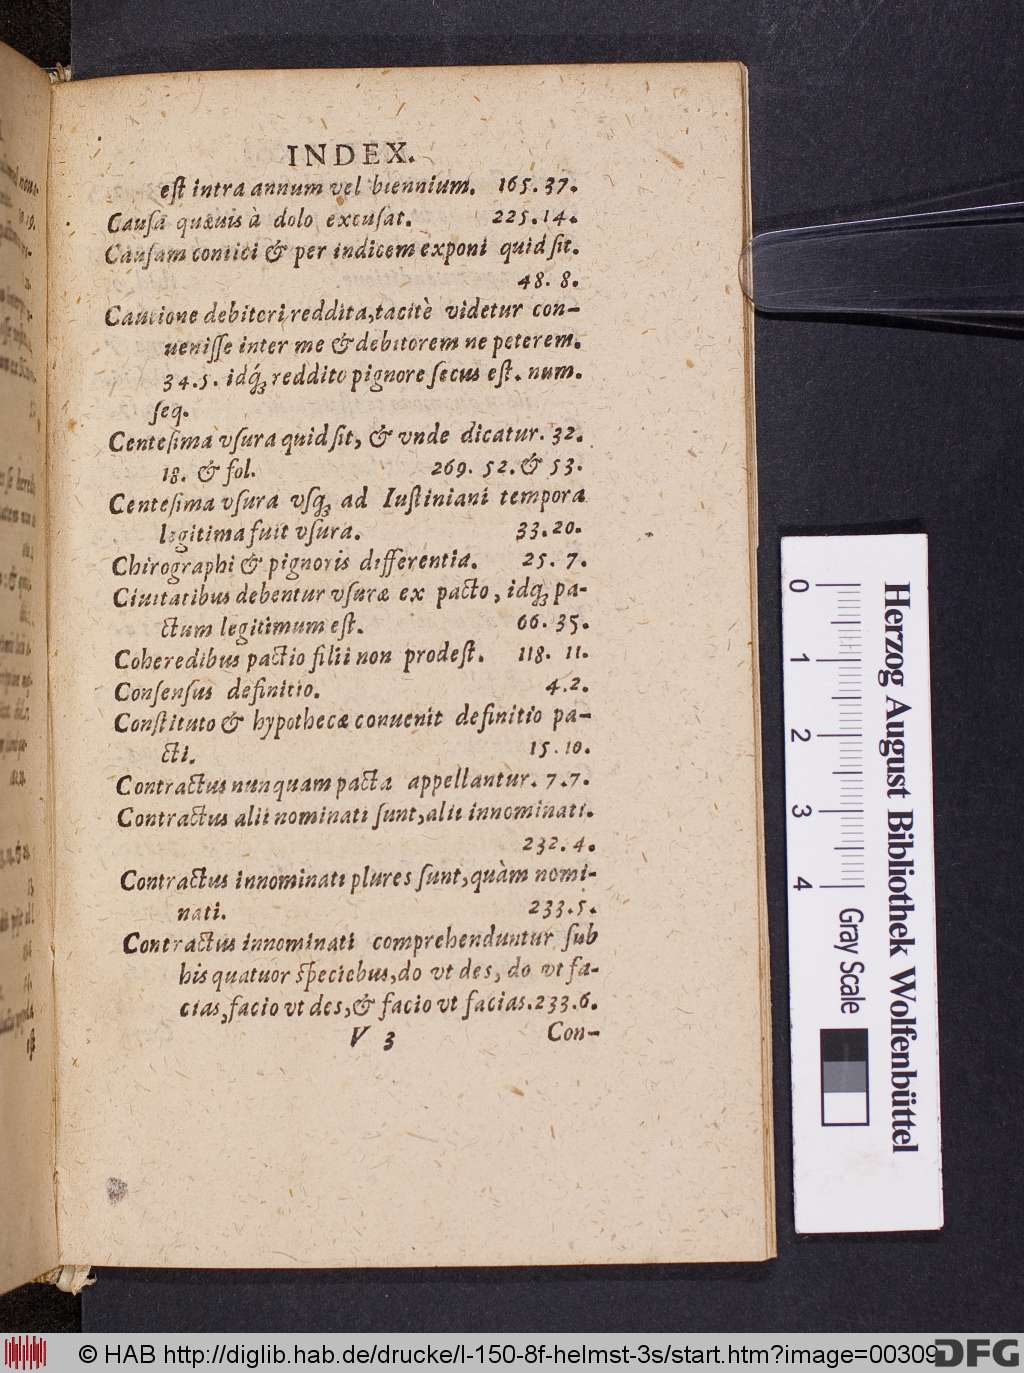 INDEX.
eſt intra annum vel biennium. 165. 37.
Cauſa quæuis à dolo excuſat. 225. 14.
Cauſam coniici & per indicem exponi quid ſit.
48. 8.
Cautione debitori reddita, tacitè videtur con-
ueniſſe inter me & debitorem ne peterem.
34. 5. idq́ꝫ reddito pignore ſecus eſt. num.
ſeq.
Centeſima vſura quid ſit, & vnde dicatur. 32.
18. & fol. 269. 52. & 53.
Centeſima vſura vſqꝫ ad Iuſtiniani tempora
legitima fuit vſura. 33. 20.
Chirographi & pignoris differentia. 25. 7.
Ciuitatibus debentur vſuræ ex pacto, idqꝫ pa-
ctum legitimum eſt. 66. 35.
Coheredibus pactio filii non prodeſt. 118. 11.
Conſenſus definitio. 4. 2.
Conſtituto & hypothecæ conuenit definitio pa-
cti. 15. 10.
Contractus nunquam pacta appellantur. 7. 7.
Contractus alii nominati ſunt, alii innominati.
232. 4.
Contractus innominati plures ſunt, quàm nomi-
nati. 233. 5.
Contractus innominati comprehenduntur ſub
his quatuor ſpeciebus, do vt des, do vt fa-
cias, facio vt des, & facio vt facias. 233. 6.
V 3 Con-
Herzog August Bibliothek Wolfenbüttel
0 1 2 3 4 Gray Scale
© HAB http://diglib.hab.de/drucke/l-150-8f-helmst-3s/start.htm?image=00309
DFG